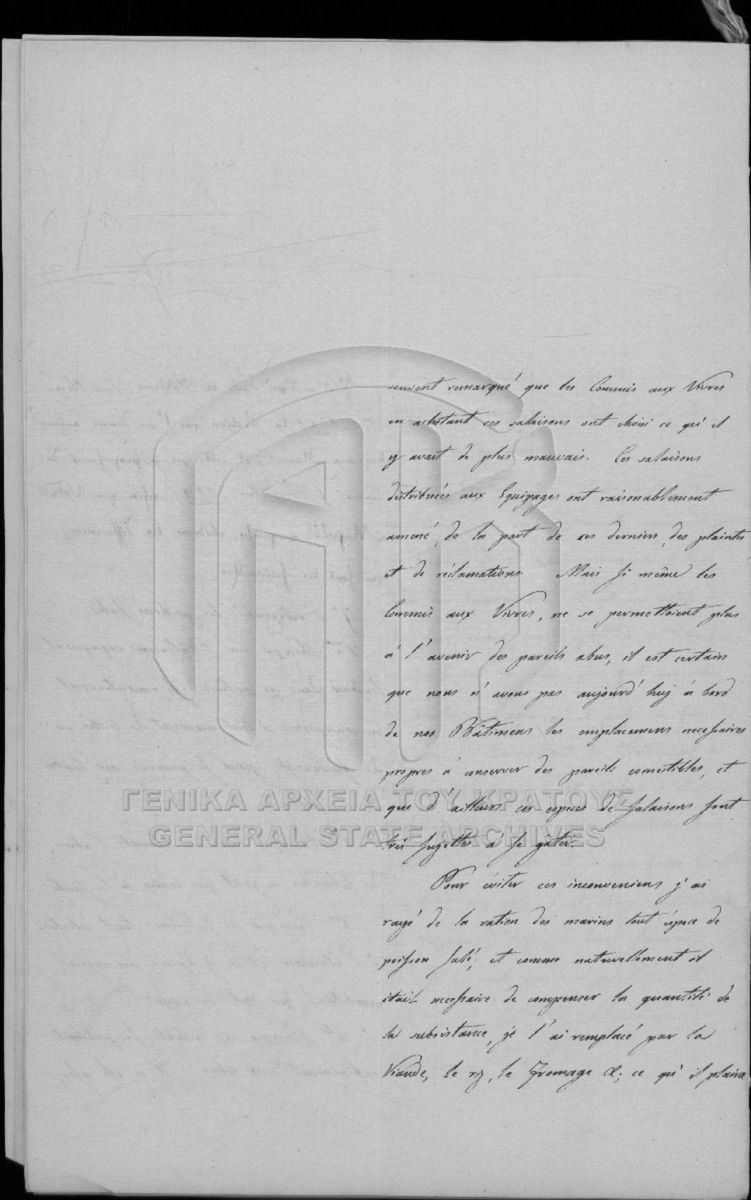 souvent remarqué que les Commis aux Vivres
en achetant ces salaisons ont choisi ce qu'il
y avait de plus mauvais. Ces salaisons
distribuées aux Equipages ont raisonablement
amené, de la part de ces derniers, des plaintes
et de réclamations. Mais si même les
Commis aux Vivres, ne se permettoient plus
à l'avenir des pareils abus, il est certain
que nous n'avons pas aujourd'huj à bord
de nos Bâtimens les emplacemens necessaires
propres à conserver des pareils comestibles, et
que d'ailleurs ces especes de salaisons sont
très sujettes a se gâter.
Pour éviter ces inconveniens j'ai
rayé de la ration des marins tout éspece de
poisson salé, et comme naturellement il
était necessaire de compenser la quantité de
la subsistance, je l'ai remplacé par la
Viande, le riz, le Fromage &; ce qu'il plaira
ΓΕΝΙΚΑ ΑΡΧΕΙΑ ΤΟΥ ΚΡΑΤΟΥΣ
GENERAL STATE ARCHIVES